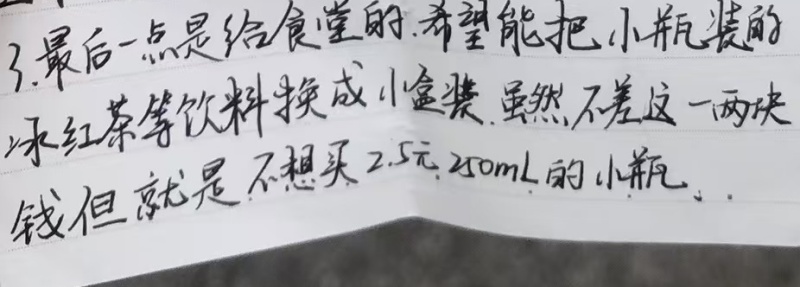 3.最后一点是给食堂的.希望能把小瓶装的
冰红茶等饮料换成小盒装.虽然不差这一两块
钱但就是不想买2.5元.250mL的小瓶..